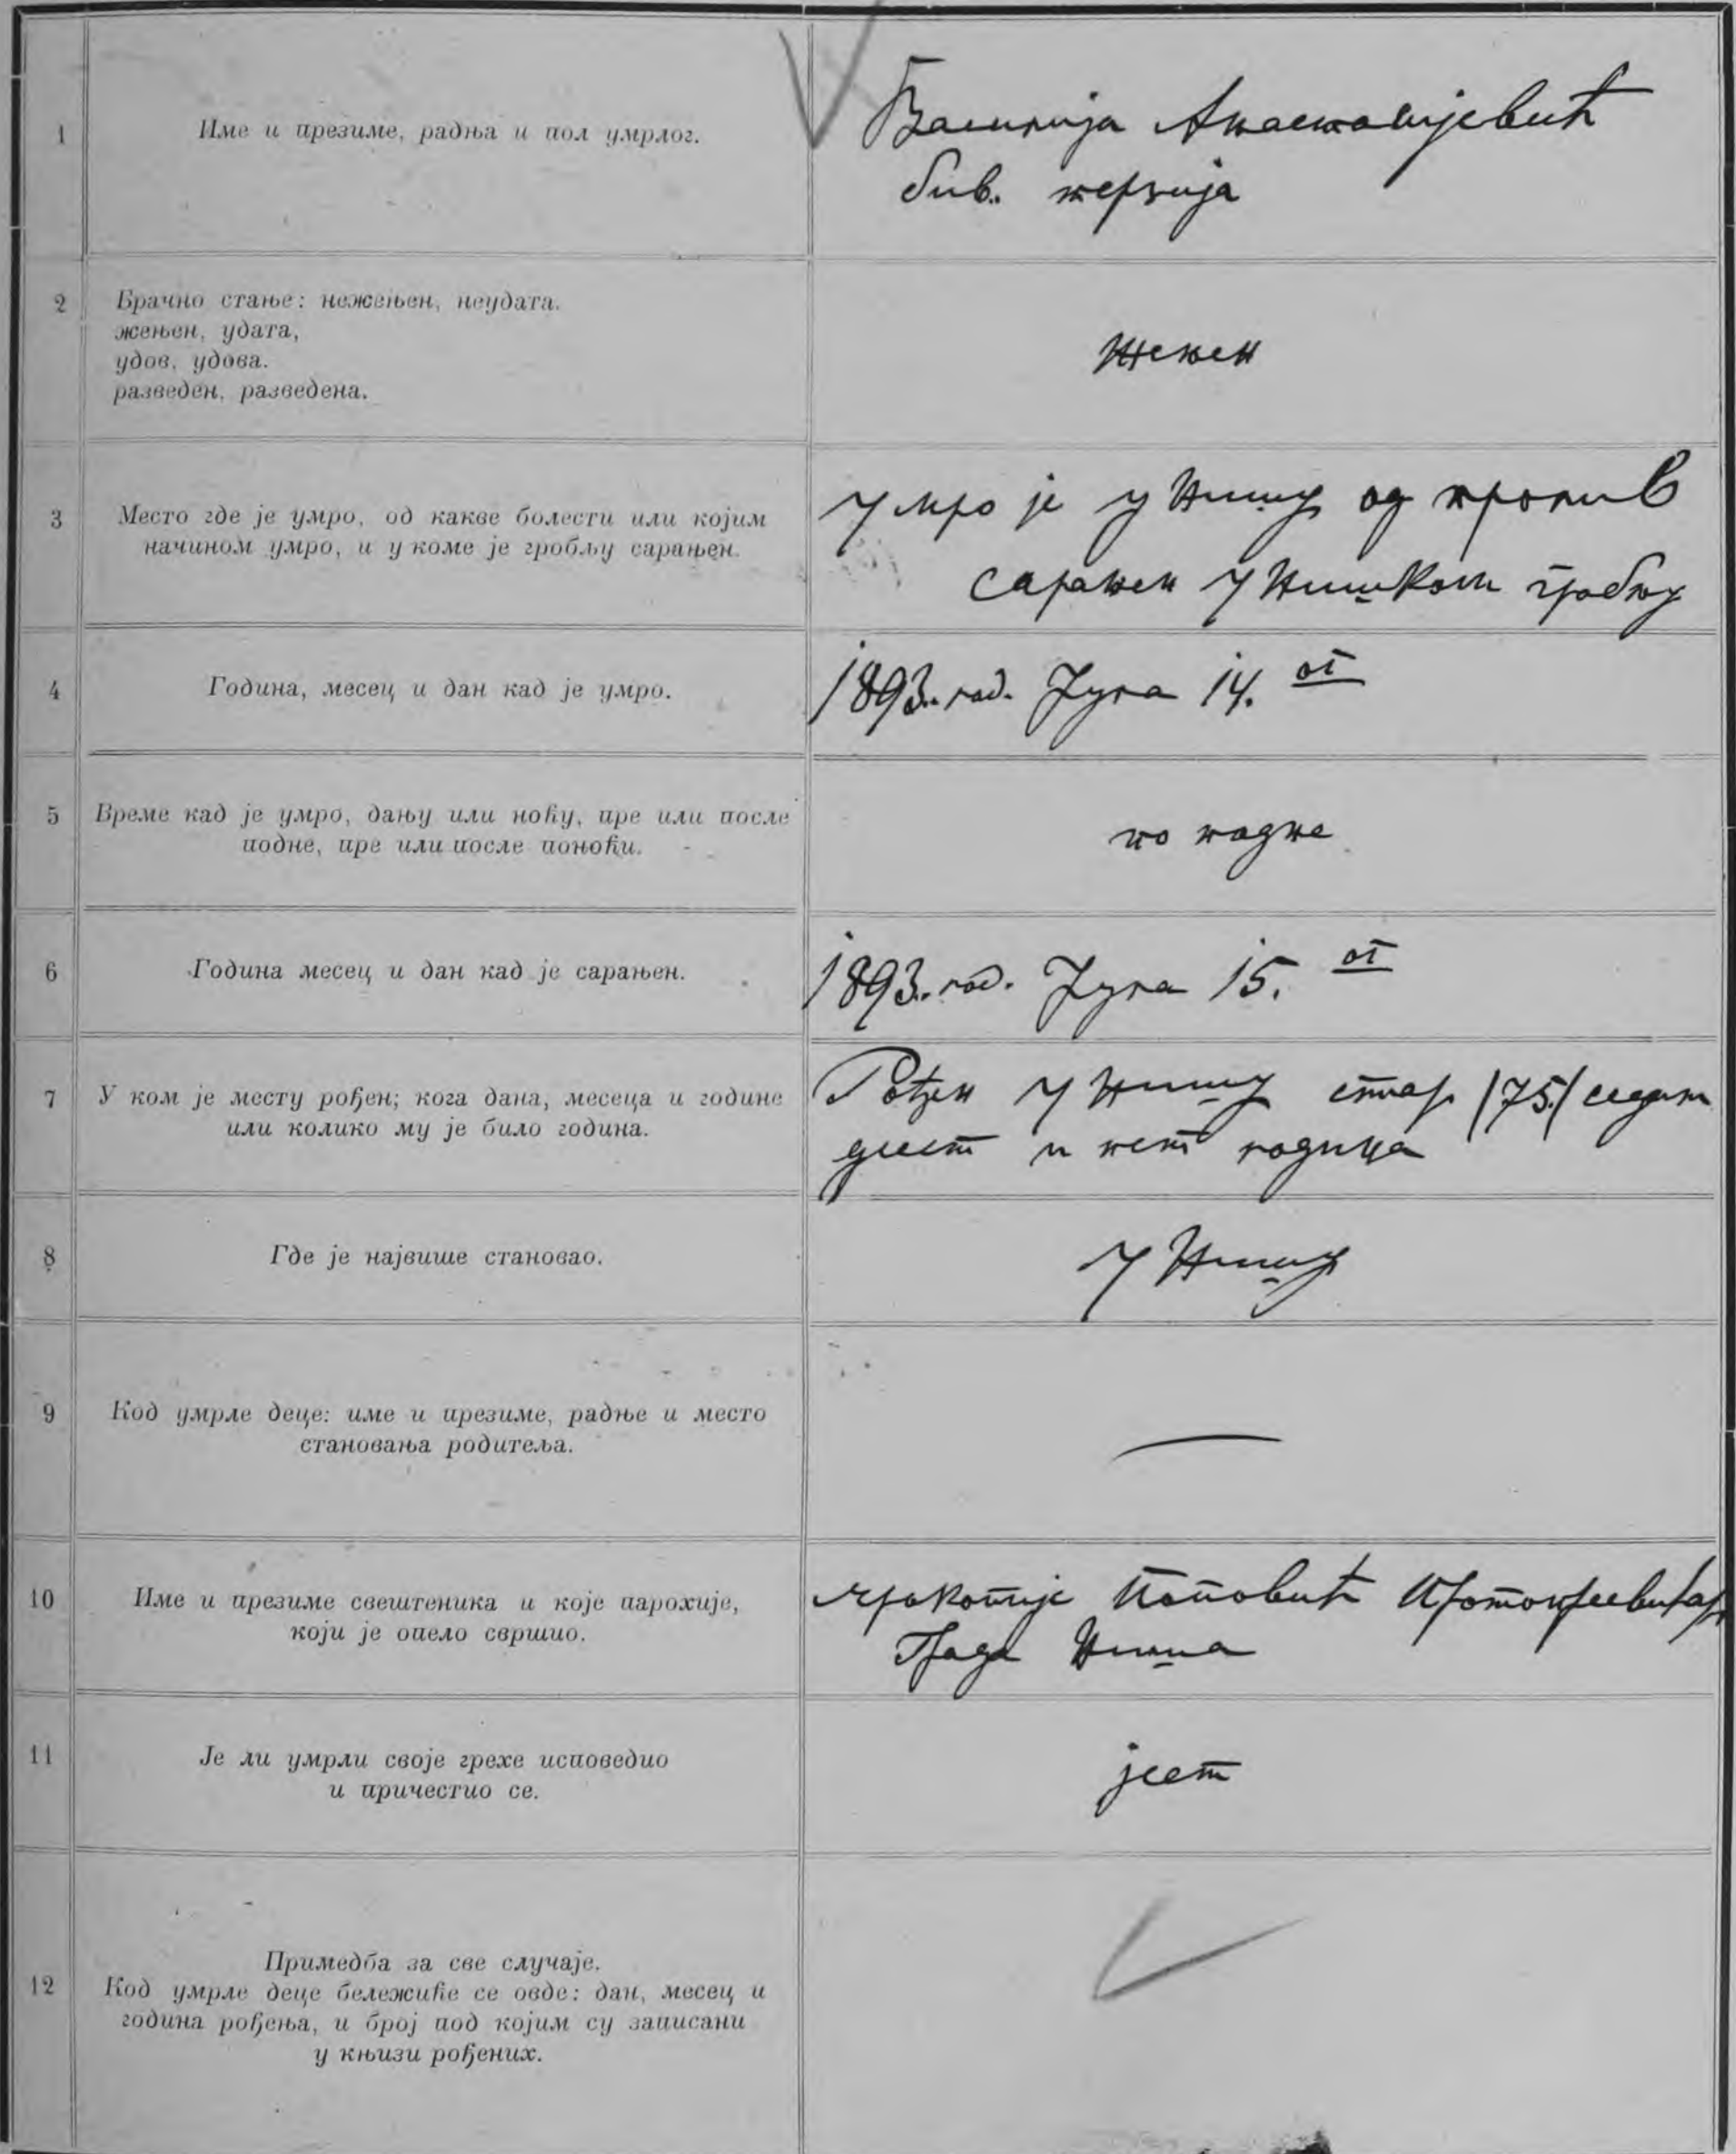 1
Име и презиме, радња и пол умрлог.
Василија Анастасијевић
бив. терзија
2
Брачно стање: нежењен, неудата.
жењен, удата,
удов, удова.
разведен, разведена.
Жењен
3
Место где је умро, од какве болести или којим
начином умро, и у коме је гробљу сарањен.
Умро је у Нишу од
сарањен у Нишком гробљу
4
Година, месец и дан кад је умро.
1893. год. Јула 14. ог
5
Време кад је умро, дању или ноћу, пре или после
подне, пре или после поноћи.
по подне
6
Година месец и дан кад је сарањен.
1893. год. Јула 15. ог
7
У ком је месту рођен; кога дана, месеца и године
или колико му је било година.
Рођен у Нишу стар /75/ седам
десет и пет година
8
Где је највише становао.
у Нишу
9
Код умрле деце: име и презиме, радње и место
становања родитеља.
10
Име и презиме свештеника и које парохије,
који је опело свршио.
Прокопије Поповић
Града Ниша
11
Је ли умрли своје грехе исповедио
и причестио се.
јест
12
Примедба за све случаје.
Код умрле деце бележиће се овде: дан, месец и
година рођења, и број под којим су записани
у књизи рођених.